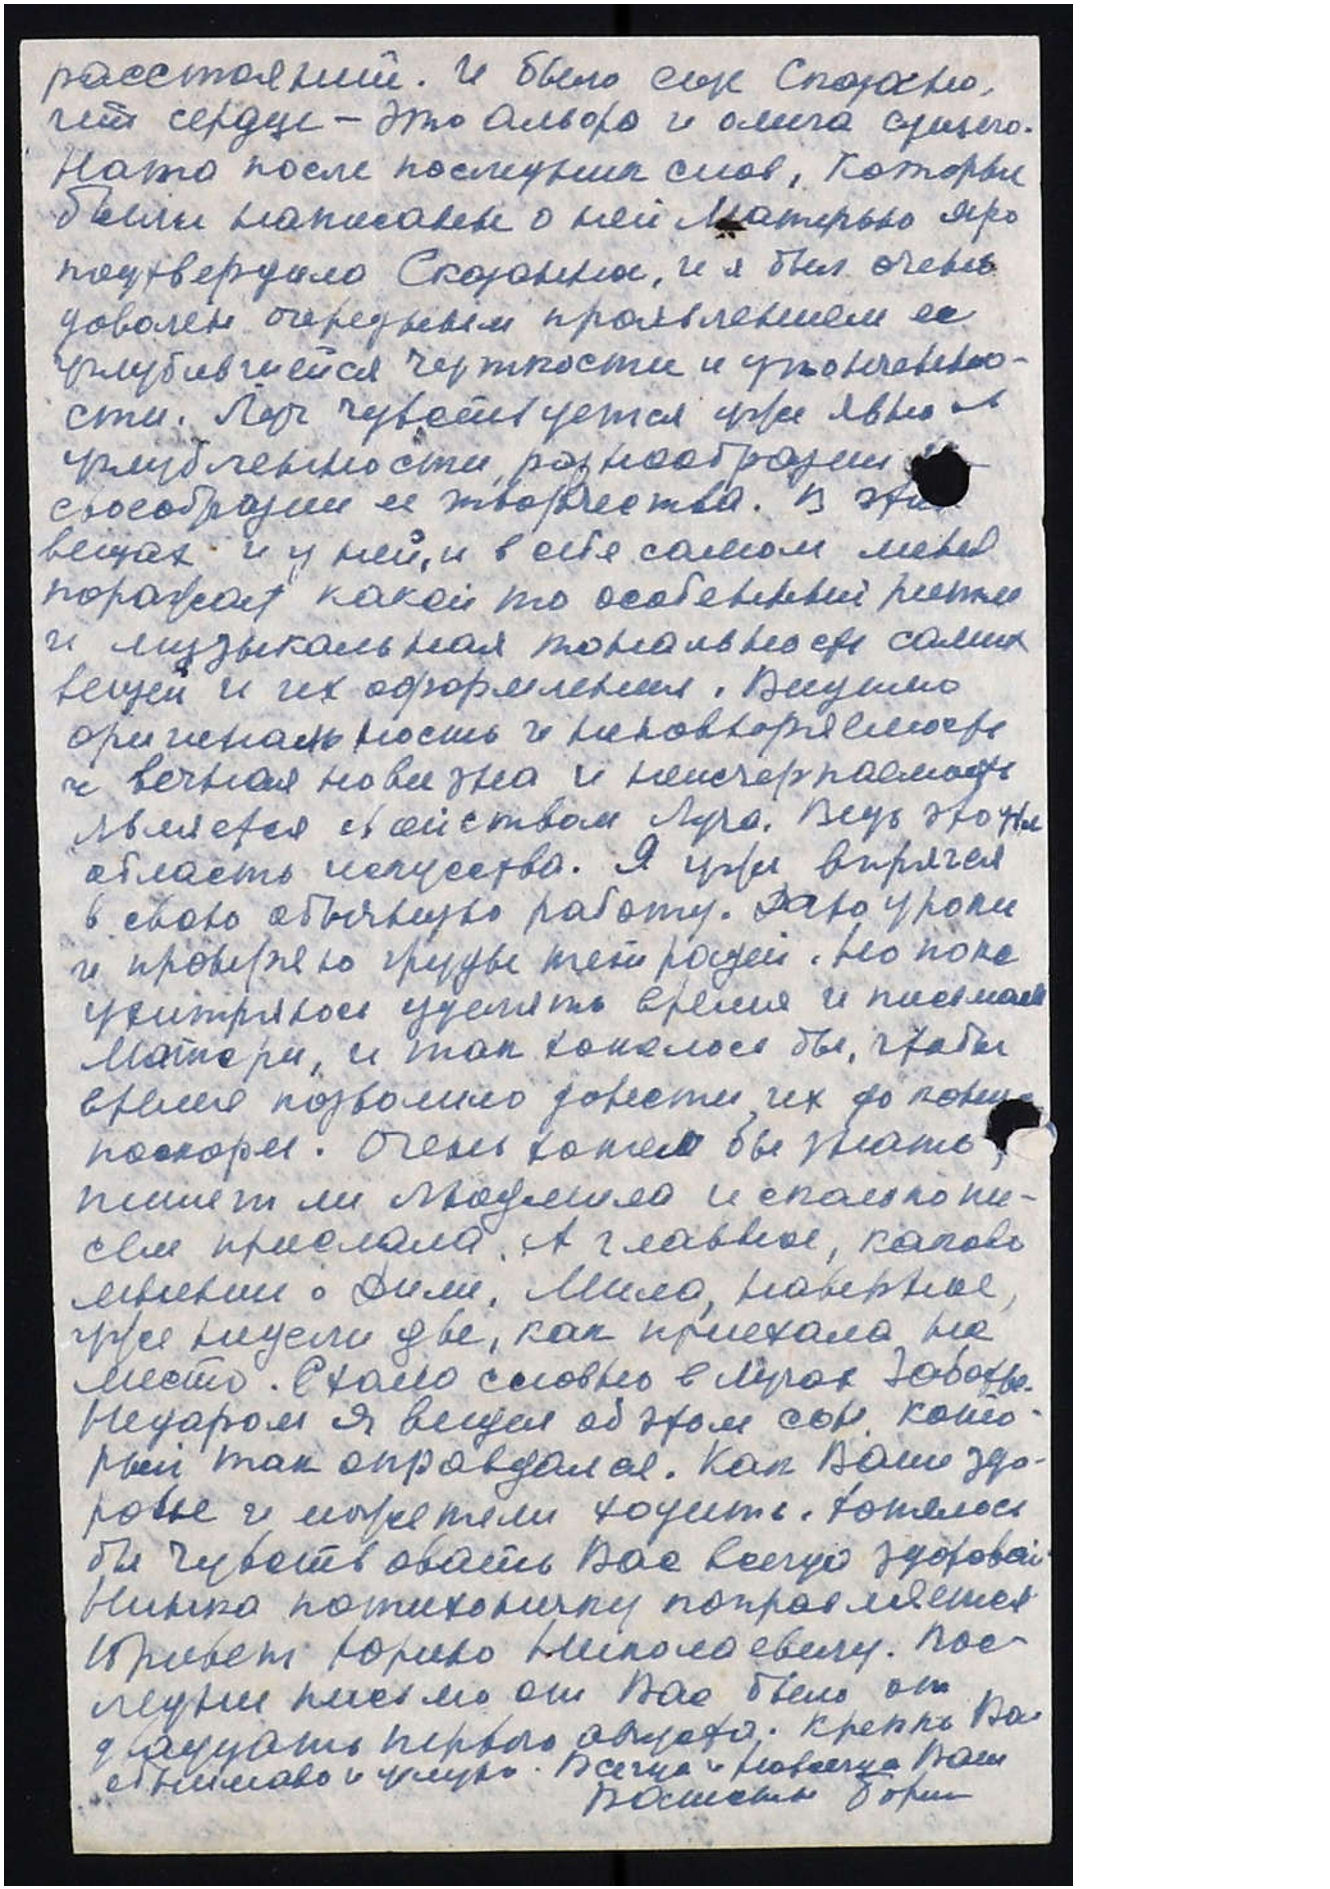 расстояний. И было еще Сказано,
что сердце – это альфа и омега сущего.
Ната после последних слов, которые
были написаны о ней Матерью ярко
подтвердила Сказанное, и я был очень
доволен очередным проявлением ее
углубившейся чуткости и утонченно-
сти. Луч чувствуется уже явно в
углубленности, разнообразии и
своеобразии ее творчества. В этих
вещах и у ней, и в себе самом меня
поражает какой то особенный ритм
и музыкальная тональность самих
вещей и их оформления. Видимо
оригинальность и неповторяемость
и вечная новизна и неисчерпаемость
является свойством Луча. Ведь это же
область искусства. Я уже впрягся
в свою обычную работу. Даю уроки
и проверяю груды тетрадей. Но пока
ухитряюсь уделять время и письмам
Матери, и так хотелось бы, чтобы
время позволило довести их до конца
поскорее. Очень хотел бы знать,
пишет ли Людмила и сколько пи-
сем прислала. А главное, каково
мнение о Дили. Мила, наверное,
уже недели две, как приехала на
место. Ехало словно в лучах Заботы.
Недаром я видел об этом сон, кото-
рый так оправдался. Как Ваше здо-
ровье и можете ли ходить. Хотелось
бы чувствовать Вас всегда здоровой.
Нинка потихонечку поправляется
Привет Юрию Николаевичу. Пос-
леднее письмо от Вас было от
двадцать первого августа. Крепко Вас
обнимаю и целую. Всегда и навсегда Ваш
Вашетя Борис